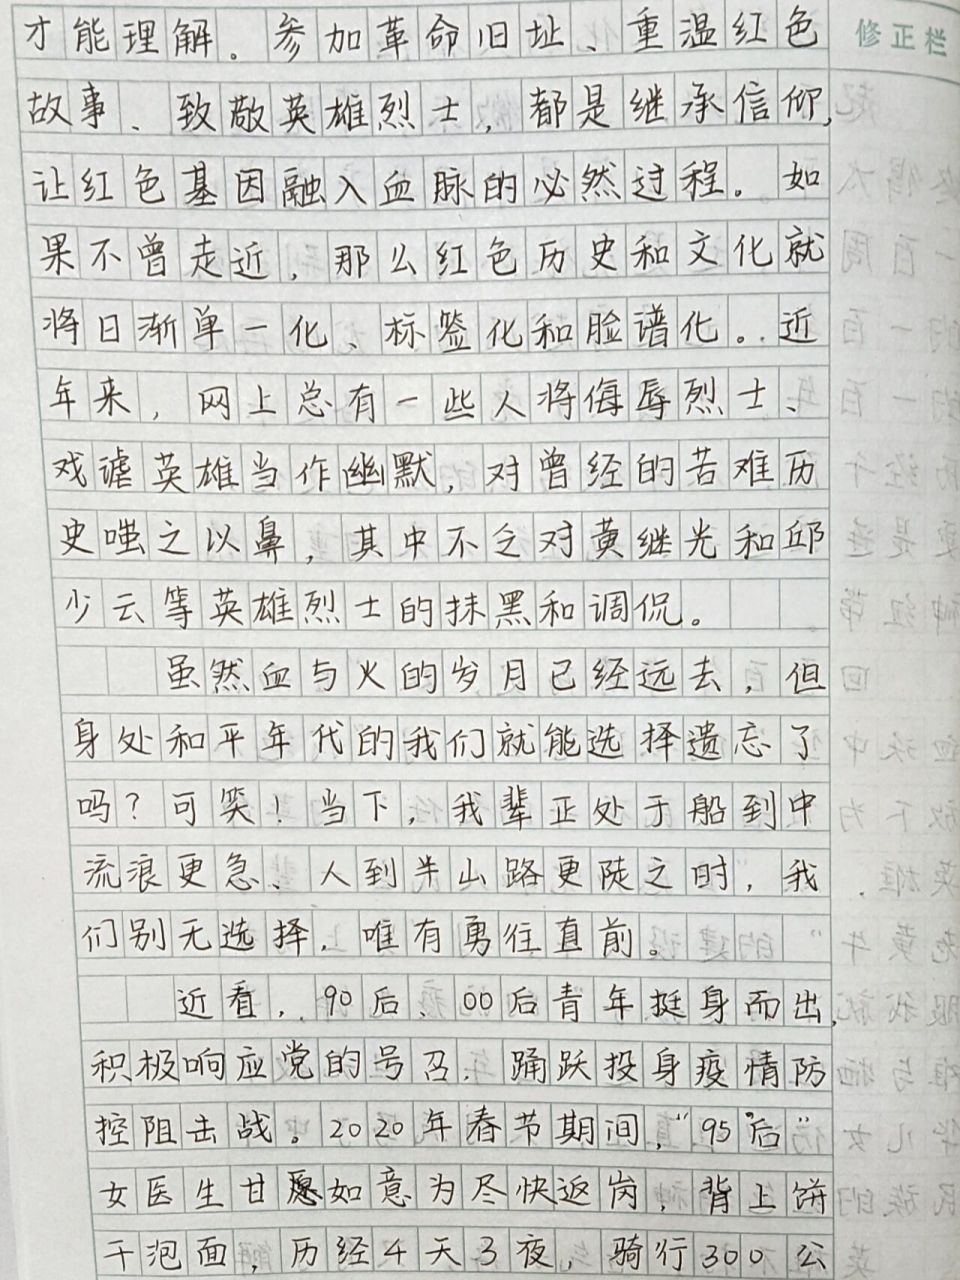 才能理解。参加革命旧址、重温红色
修正栏
故事、致敬英雄烈士，都是继承信仰，
让红色基因融入血脉的必然过程。如
果不曾走近，那么红色历史和文化就
将日渐单一化、标签化和脸谱化。近
年来，网上总有一些人将侮辱烈士、
戏谑英雄当作幽默，对曾经的苦难历
史嗤之以鼻，其中不乏对黄继光和邱
少云等英雄烈士的抹黑和调侃。
虽然血与火的岁月已经远去，但
身处和平年代的我们就能选择遗忘了
吗？可笑！当下，我辈正处于船到中
流浪更急、人到半山路更陡之时，我
们别无选择，唯有勇往直前。
近看，90后、00后青年挺身而出，
积极响应党的号召，踊跃投身疫情防
控阻击战。2020年春节期间，“95后”
女医生甘愿如意为尽快返岗，背上饼
干泡面，历经4天3夜，骑行300公